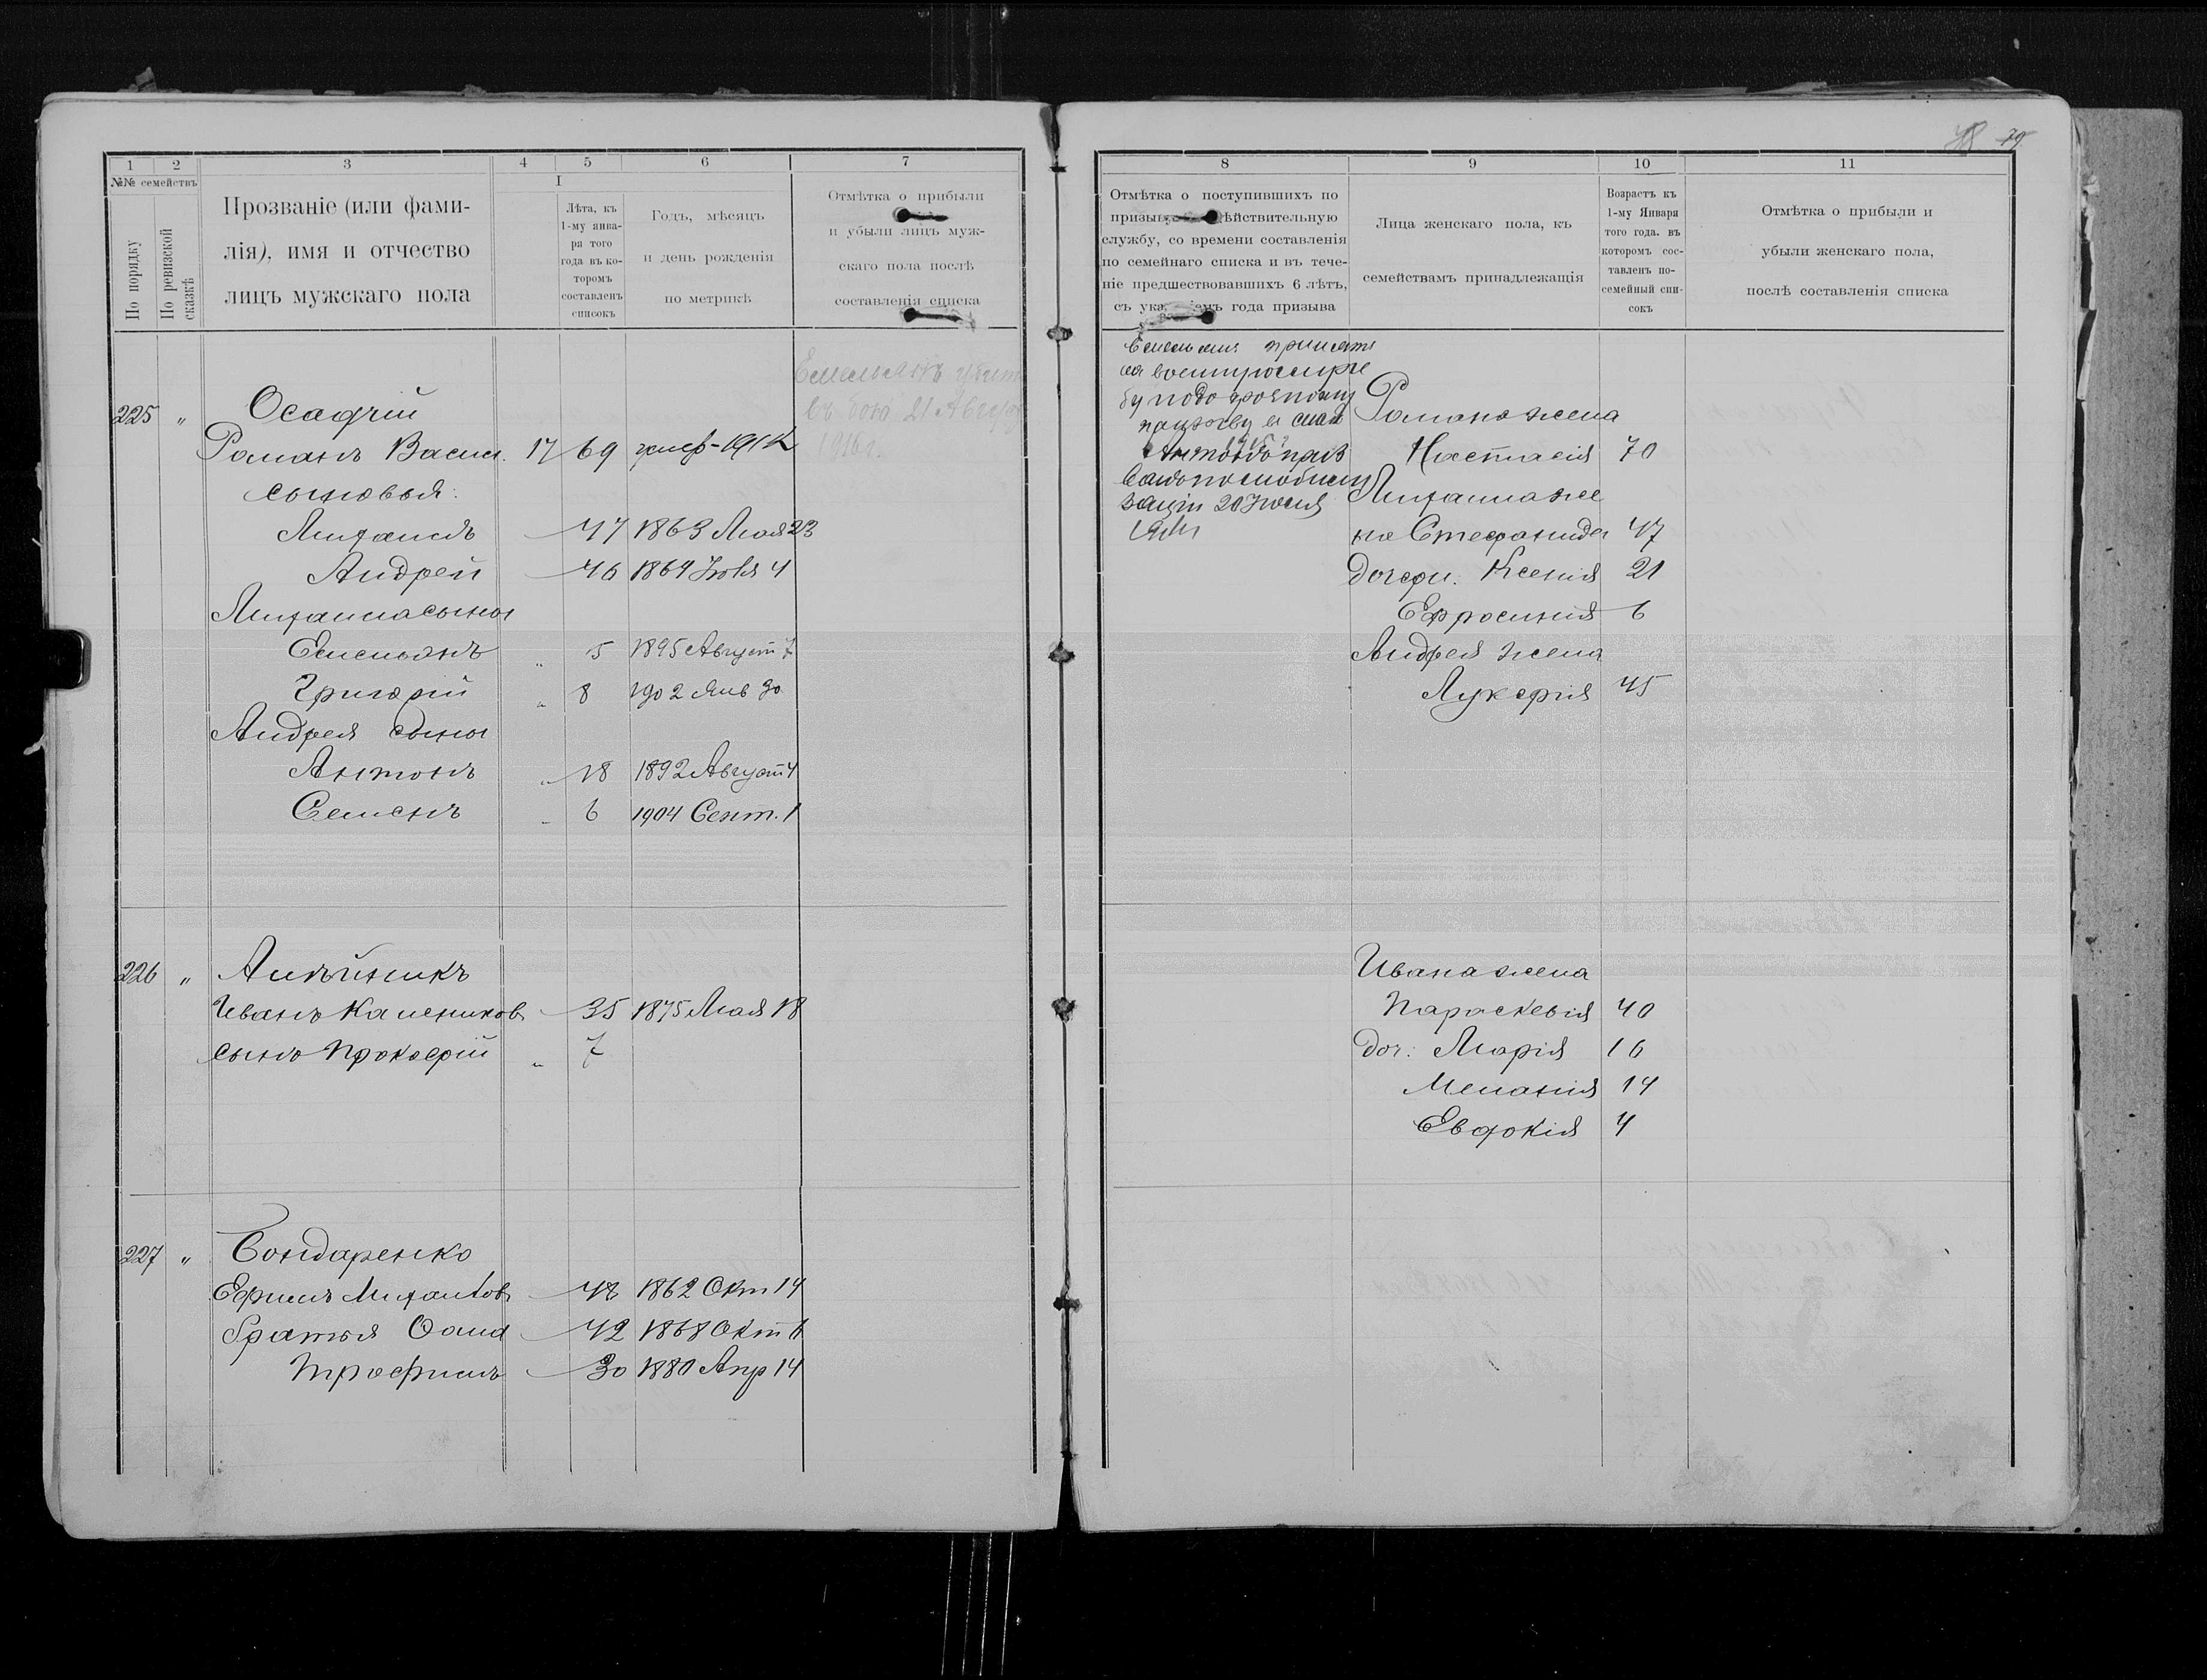 78 79
1 2 3 4 5 6 7
№№ семействъ
По порядку
По ревизской сказкѣ
Прозваніе (или фами-
лія), имя и отчество
лицъ мужскаго пола
I
Лѣта, къ
1-му янва-
ря того
года въ ко-
торомъ
составленъ
списокъ
Годъ, мѣсяцъ
и день рожденія
по метрикѣ
Отмѣтка о прибыли
и убыли лицъ муж-
скаго пола послѣ
составленія списка
Емельянъ убит
въ бою 21 Август
1916 г.
225 " Осадчій
Романъ Васил. 17 69 умер-1912
сыновья:
Михаилъ 47 1863 Мая 23
Андрей 46 1864 Іюля 4
Михаила сыны
Емельянъ " 5 1895 Август 7
Григорій " 8 1902 Янв 30
Андрея сыны
Антонъ " 18 1892 Август 4
Семенъ " 6 1904 Сент. 1
226 " Алѣйникъ
Иванъ Калеников 35 1875 Мая 18
сынъ Прокофій " 7
227 " Бондаренко
Ефимъ Михайлов 48 1862 Окт 14
братья Фома 42 1868 Окт 6
Трофимъ 30 1880 Апр 14
8 9 10 11
Отмѣтка о поступившихъ по
призыву дѣйствительную
службу, со времени составленія
по семейнаго списка и въ тече-
ніе предшествовавшихъ 6 лѣтъ,
съ ука емъ года призыва
Лица женскаго пола, къ
семействамъ принадлежащія
Возрастъ къ
1-му Января
того года. въ
которомъ сос-
тавленъ по-
семейный спи-
сокъ
Отмѣтка о прибыли и
убыли женскаго пола,
послѣ составленія списка
Емельянъ принятъ
на
призыву в
Антонъ
заціи 20 Іюля
Романа жена
Настасія 70
Михаила же
на Стефанида 47
дочери: Ксенія 21
Ефросинія 6
Андрея жена
Лукерія 45
Ивана жена
Параскевія 40
доч: Марія 16
Меланія 14
Евдокія 4